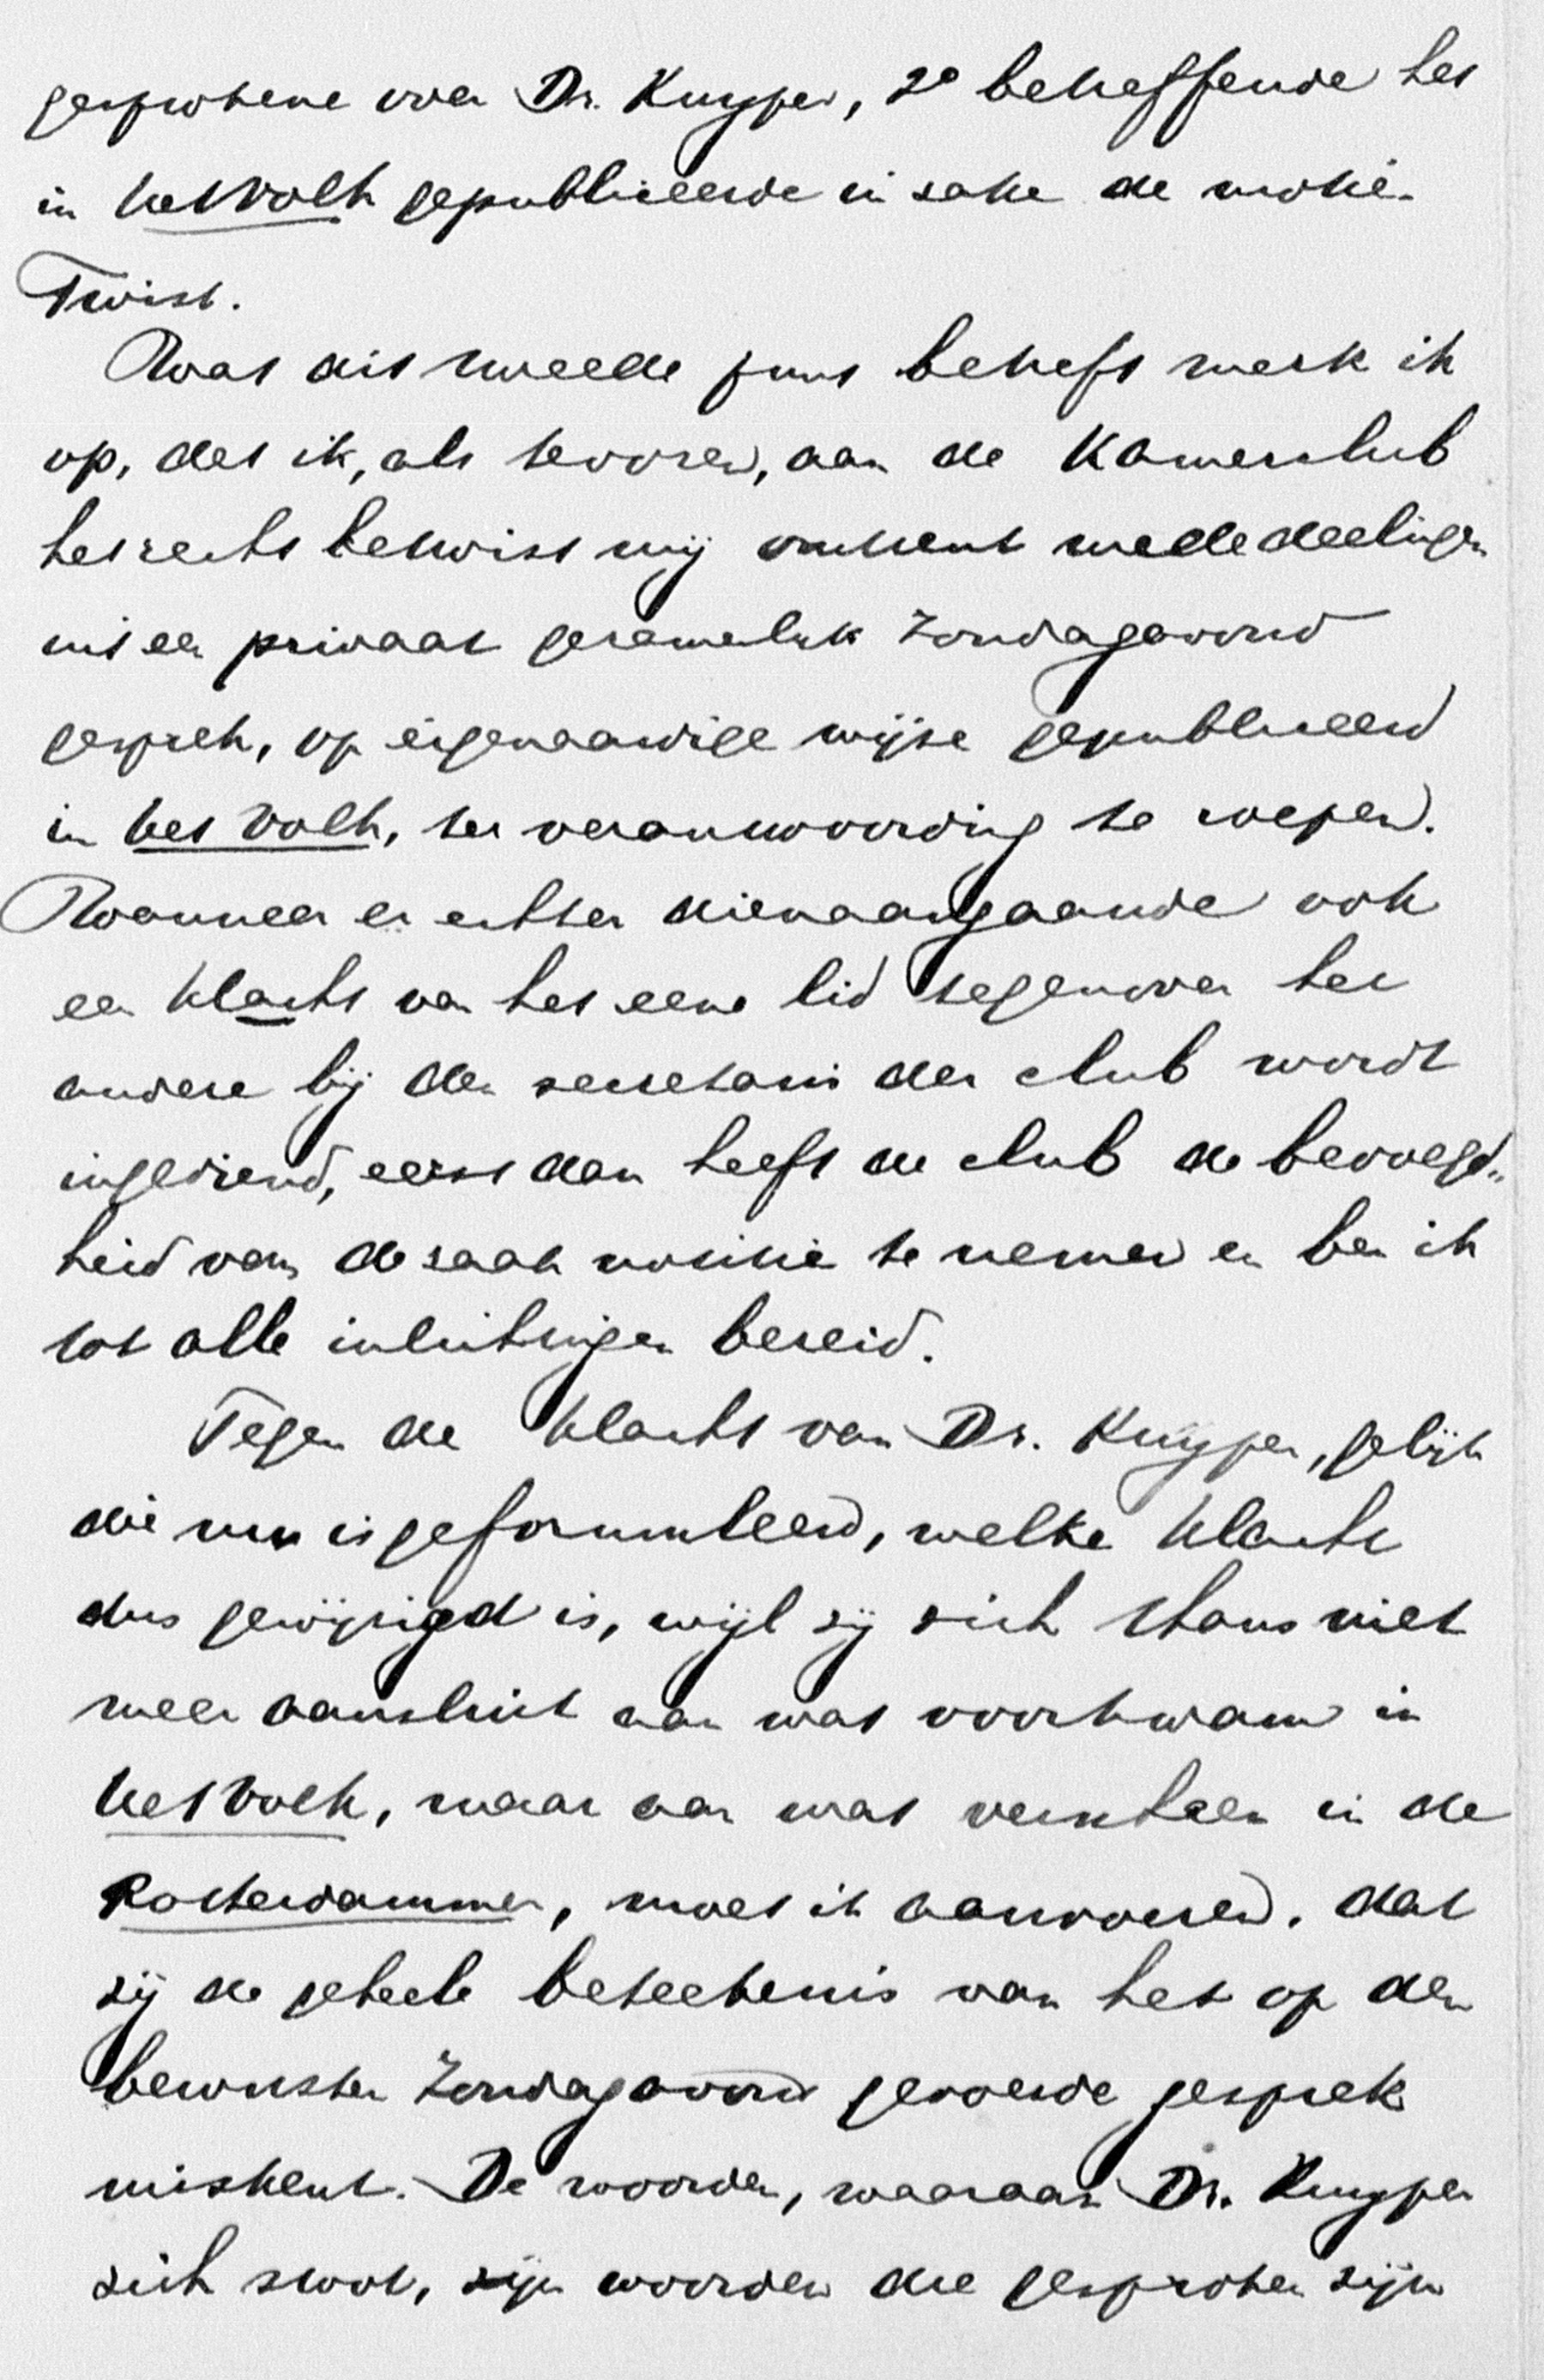 gesprokene over Dr. Kuyper, 2º betreffende het
in het Volk gepubliceerde in zake de motie-
Twist.
Wat dit tweede punt betreft merk ik
op, dat ik, als tevoren, aan de Kamerclub
het recht betwist mij omtrent mededeelingen
uit een privaat gezamenlijk Zondagavond
gesprek, op eigenaardige wijze gepubliceerd
in het Volk, ter verantwoording te roepen.
Wanneer er echter dienaangaande ook
een klacht van het eene lid tegenover het
andere bij den secretaris der club wordt
ingediend, eerst dan heeft de club de bevoegd-
heid van de zaak notitie te nemen en ben ik
tot alle inlichtingen bereid.
Tegen de klacht van Dr. Kuyper, gelijk
die nu is geformuleerd, welke klacht
dus gewijzigd is, wijl zij zich thans niet
meer aansluit aan wat voorkwam in
het Volk, maar aan wat verscheen in de
Rotterdammer, moet ik aanvoeren, dat
zij de geheele beteekenis van het op den
bewusten Zondagavond gevoerde gesprek
miskent. De woorden, waaraan Dr. Kuyper
zich stoot, zijn woorden die gesproken zijn